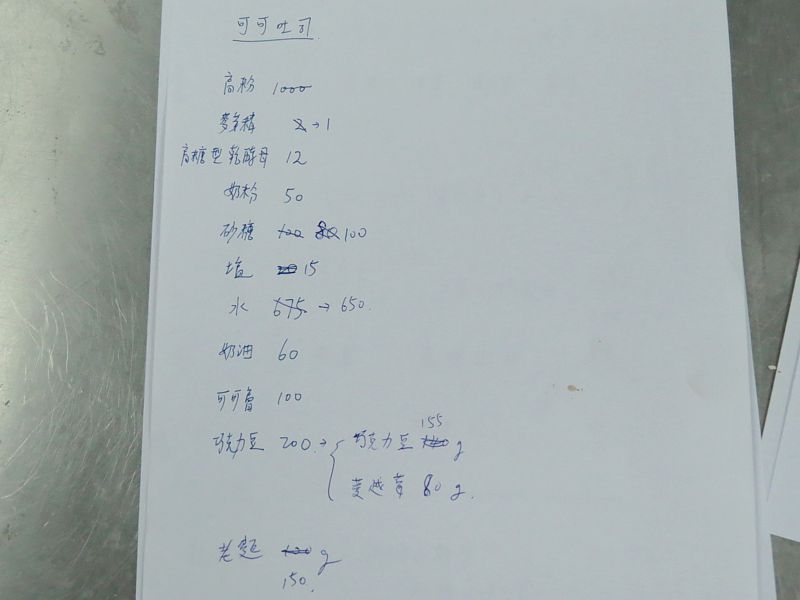 可可吐司
高粉 1000
麥芽精 2→1
高糖型乾酵母 12
奶粉 50
砂糖 100 80 100
塩 20 15
水 675 → 650.
奶油 60
可可膏 100
155
巧克力豆 200 → 巧克力豆 g
蔓越莓 80 g.
老麵 100 g
150.